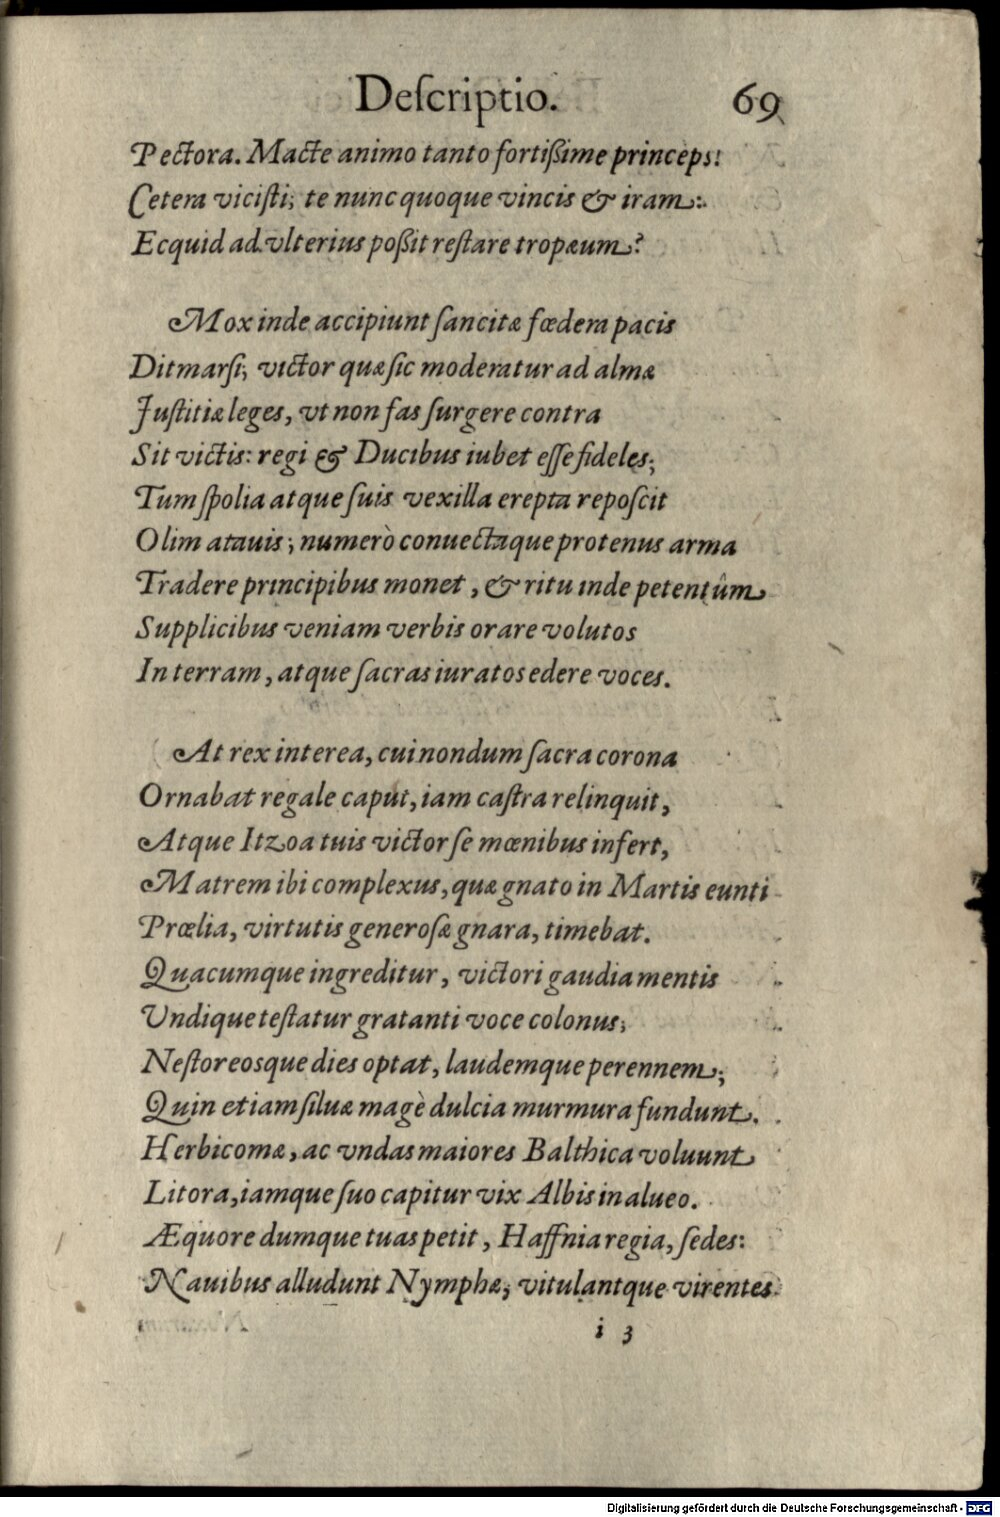 Deſcriptio. 69
Pectora. Macte animo tanto fortißime princeps!
Cetera viciſti; te nunc quoque vincis & iram:
Ecquid ad vlterius poßit reſtare tropæum?
Mox inde accipiunt ſancitæ fœdera pacis
Ditmarſi; victor quæ ſic moderatur ad almæ
Juſtitiæ leges, vt non fas ſurgere contra
Sit victis: regi & Ducibus iubet eſſe fideles;
Tum ſpolia atque ſuis vexilla erepta repoſcit
Olim atauis; numerò conuectaque protenus arma
Tradere principibus monet, & ritu inde petentûm
Supplicibus veniam verbis orare volutos
In terram, atque ſacras iuratos edere voces.
At rex interea, cui nondum ſacra corona
Ornabat regale caput, iam caſtra relinquit,
Atque Itzoa tuis victor ſe mœnibus infert,
Matrem ibi complexus, quæ gnato in Martis eunti
Prœlia, virtutis generoſæ gnara, timebat.
Quacumque ingreditur, victori gaudia mentis
Vndique teſtatur gratanti voce colonus;
Neſtoreosque dies optat, laudemque perennem;
Quin etiam ſiluæ magè dulcia murmura fundunt.
Herbicomæ, ac vndas maiores Balthica voluunt
Litora, iamque ſuo capitur vix Albis in alueo.
Æquore dumque tuas petit, Haffnia regia, ſedes:
Nauibus alludunt Nymphæ; vitulantque virentes
i 3
Digitalisierung gefördert durch die Deutsche Forschungsgemeinschaft - DFG